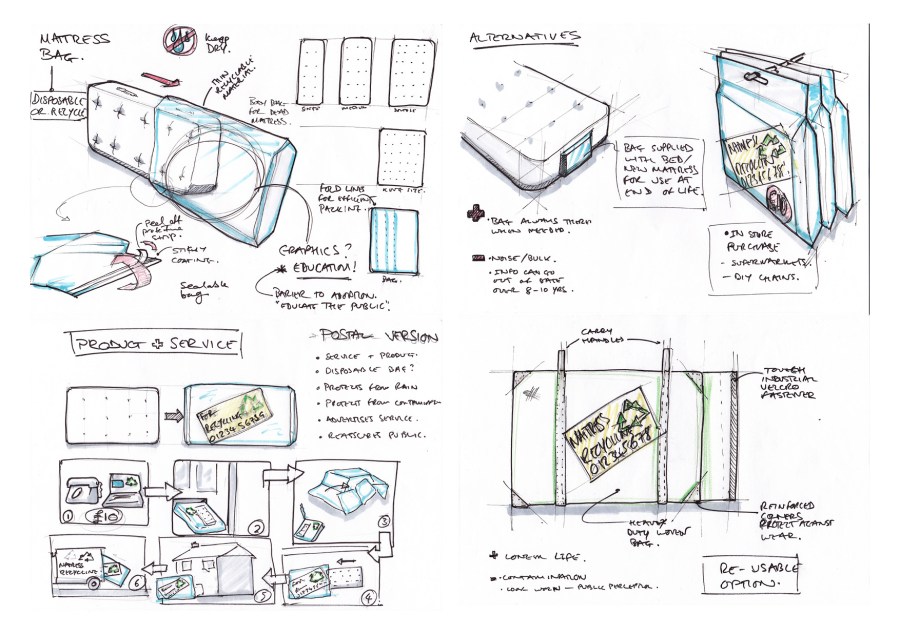 MATTRESS
BAG.
DISPOSABLE
OR RECYCLE
Keep
DRY.
THIN
RECYCLABLE
MATERIAL.
BODY BAG
FOR DEAD
MATTRESS.
SINGLE
DOUBLE
KING SIZE.
FOLD LINES
FOR EFFICIENT
PACKING.
BAG.
Peel off
protective
strip.
STICKY
COATING.
Sealable
bag
GRAPHICS?
* EDUCATION!
BARIER TO ADOPTION.
"EDUCATE THE PUBLIC".
ALTERNATIVES
BAG SUPPLIED
WITH BED/
NEW MATTRESS
FOR USE AT
END OF LIFE.
+
• BAG ALWAYS THERE
WHEN NEEDED.
-
• NOISE/BULK.
• INFO CAN GO
OUT OF DATE
OVER 8-10 YRS.
RECYCLING
012345678
• IN STORE
PURCHASE
- SUPERMARKETS.
- DIY CHAINS.
PRODUCT + SERVICE
FOR
RECYCLING
0123456789
POSTAL VERSION
• SERVICE + PRODUCT.
• DISPOSABLE BAG?
• PROTECTS FROM RAIN
• PROTECT FROM CONTAMINATION
• ADVERTISES SERVICE.
• REASSURES PUBLIC.
1
£10
2
3
4
5
6
MATRESS
RECYCLING
CARRY
HANDLES
TOUGH
INDUSTRIAL
VELCRO
FASTENER
MATRESS
RECYCLING
012345678
HEAVY
DUTY WOVEN
BAG.
REINFORCED
CORNERS
PROTECT AGAINST
WEAR.
+ LONGER LIFE.
- CONTAMINATION
• LOOK WORN — PUBLIC PERCEPTION.
RE-USABLE
OPTION.